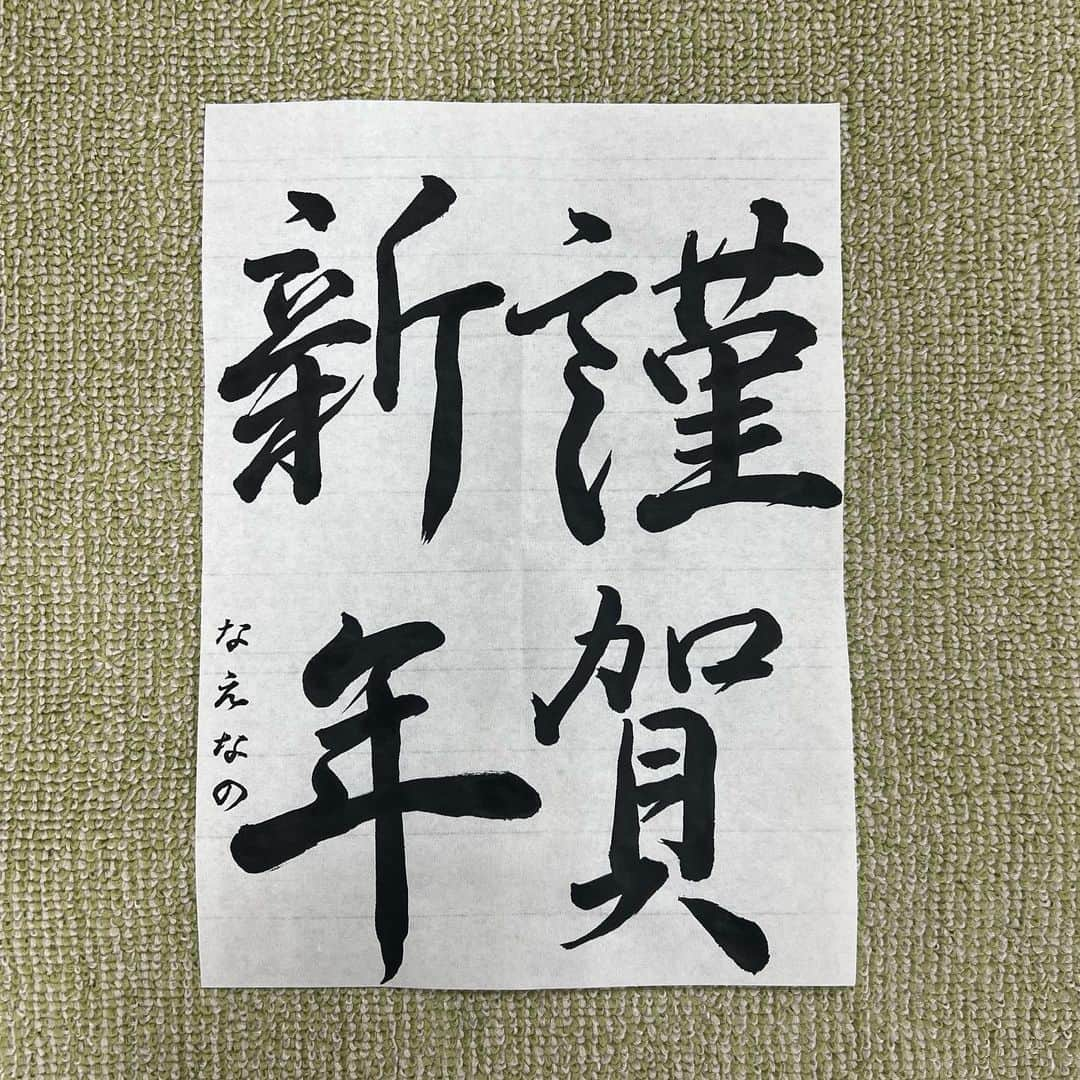 謹賀
新年
なえなの